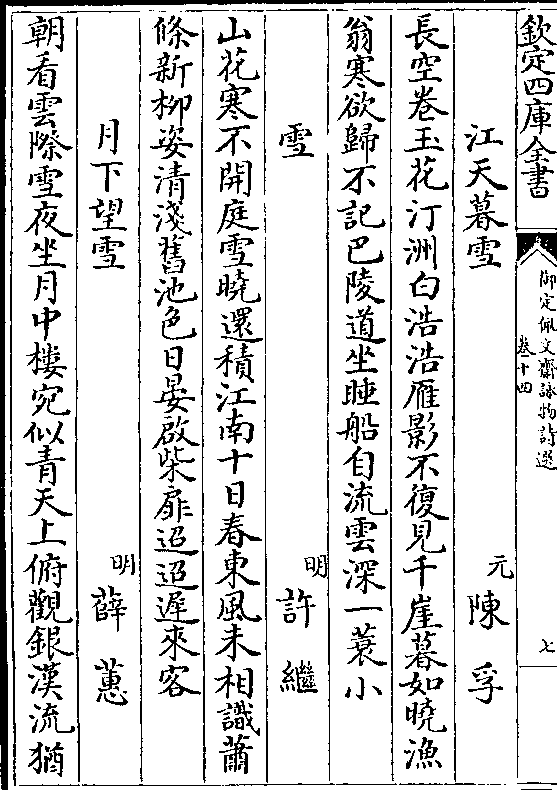 欽定四庫全書
御定佩文齋詠物詩選
卷十四
七
江天暮雪
元
陳孚
長空卷玉花汀洲白浩浩雁影不復見千崖暮如曉漁
翁寒欲歸不記巴陵道坐睡船自流雲深一蓑小
雪
明
許繼
山花寒不開庭雪曉還積江南十日春東風未相識蕭
條新柳姿清淺舊池色日晏啟柴扉迢迢遲來客
月下望雪
明
薛蕙
朝看雲際雪夜坐月中樓宛似青天上俯觀銀漢流猶